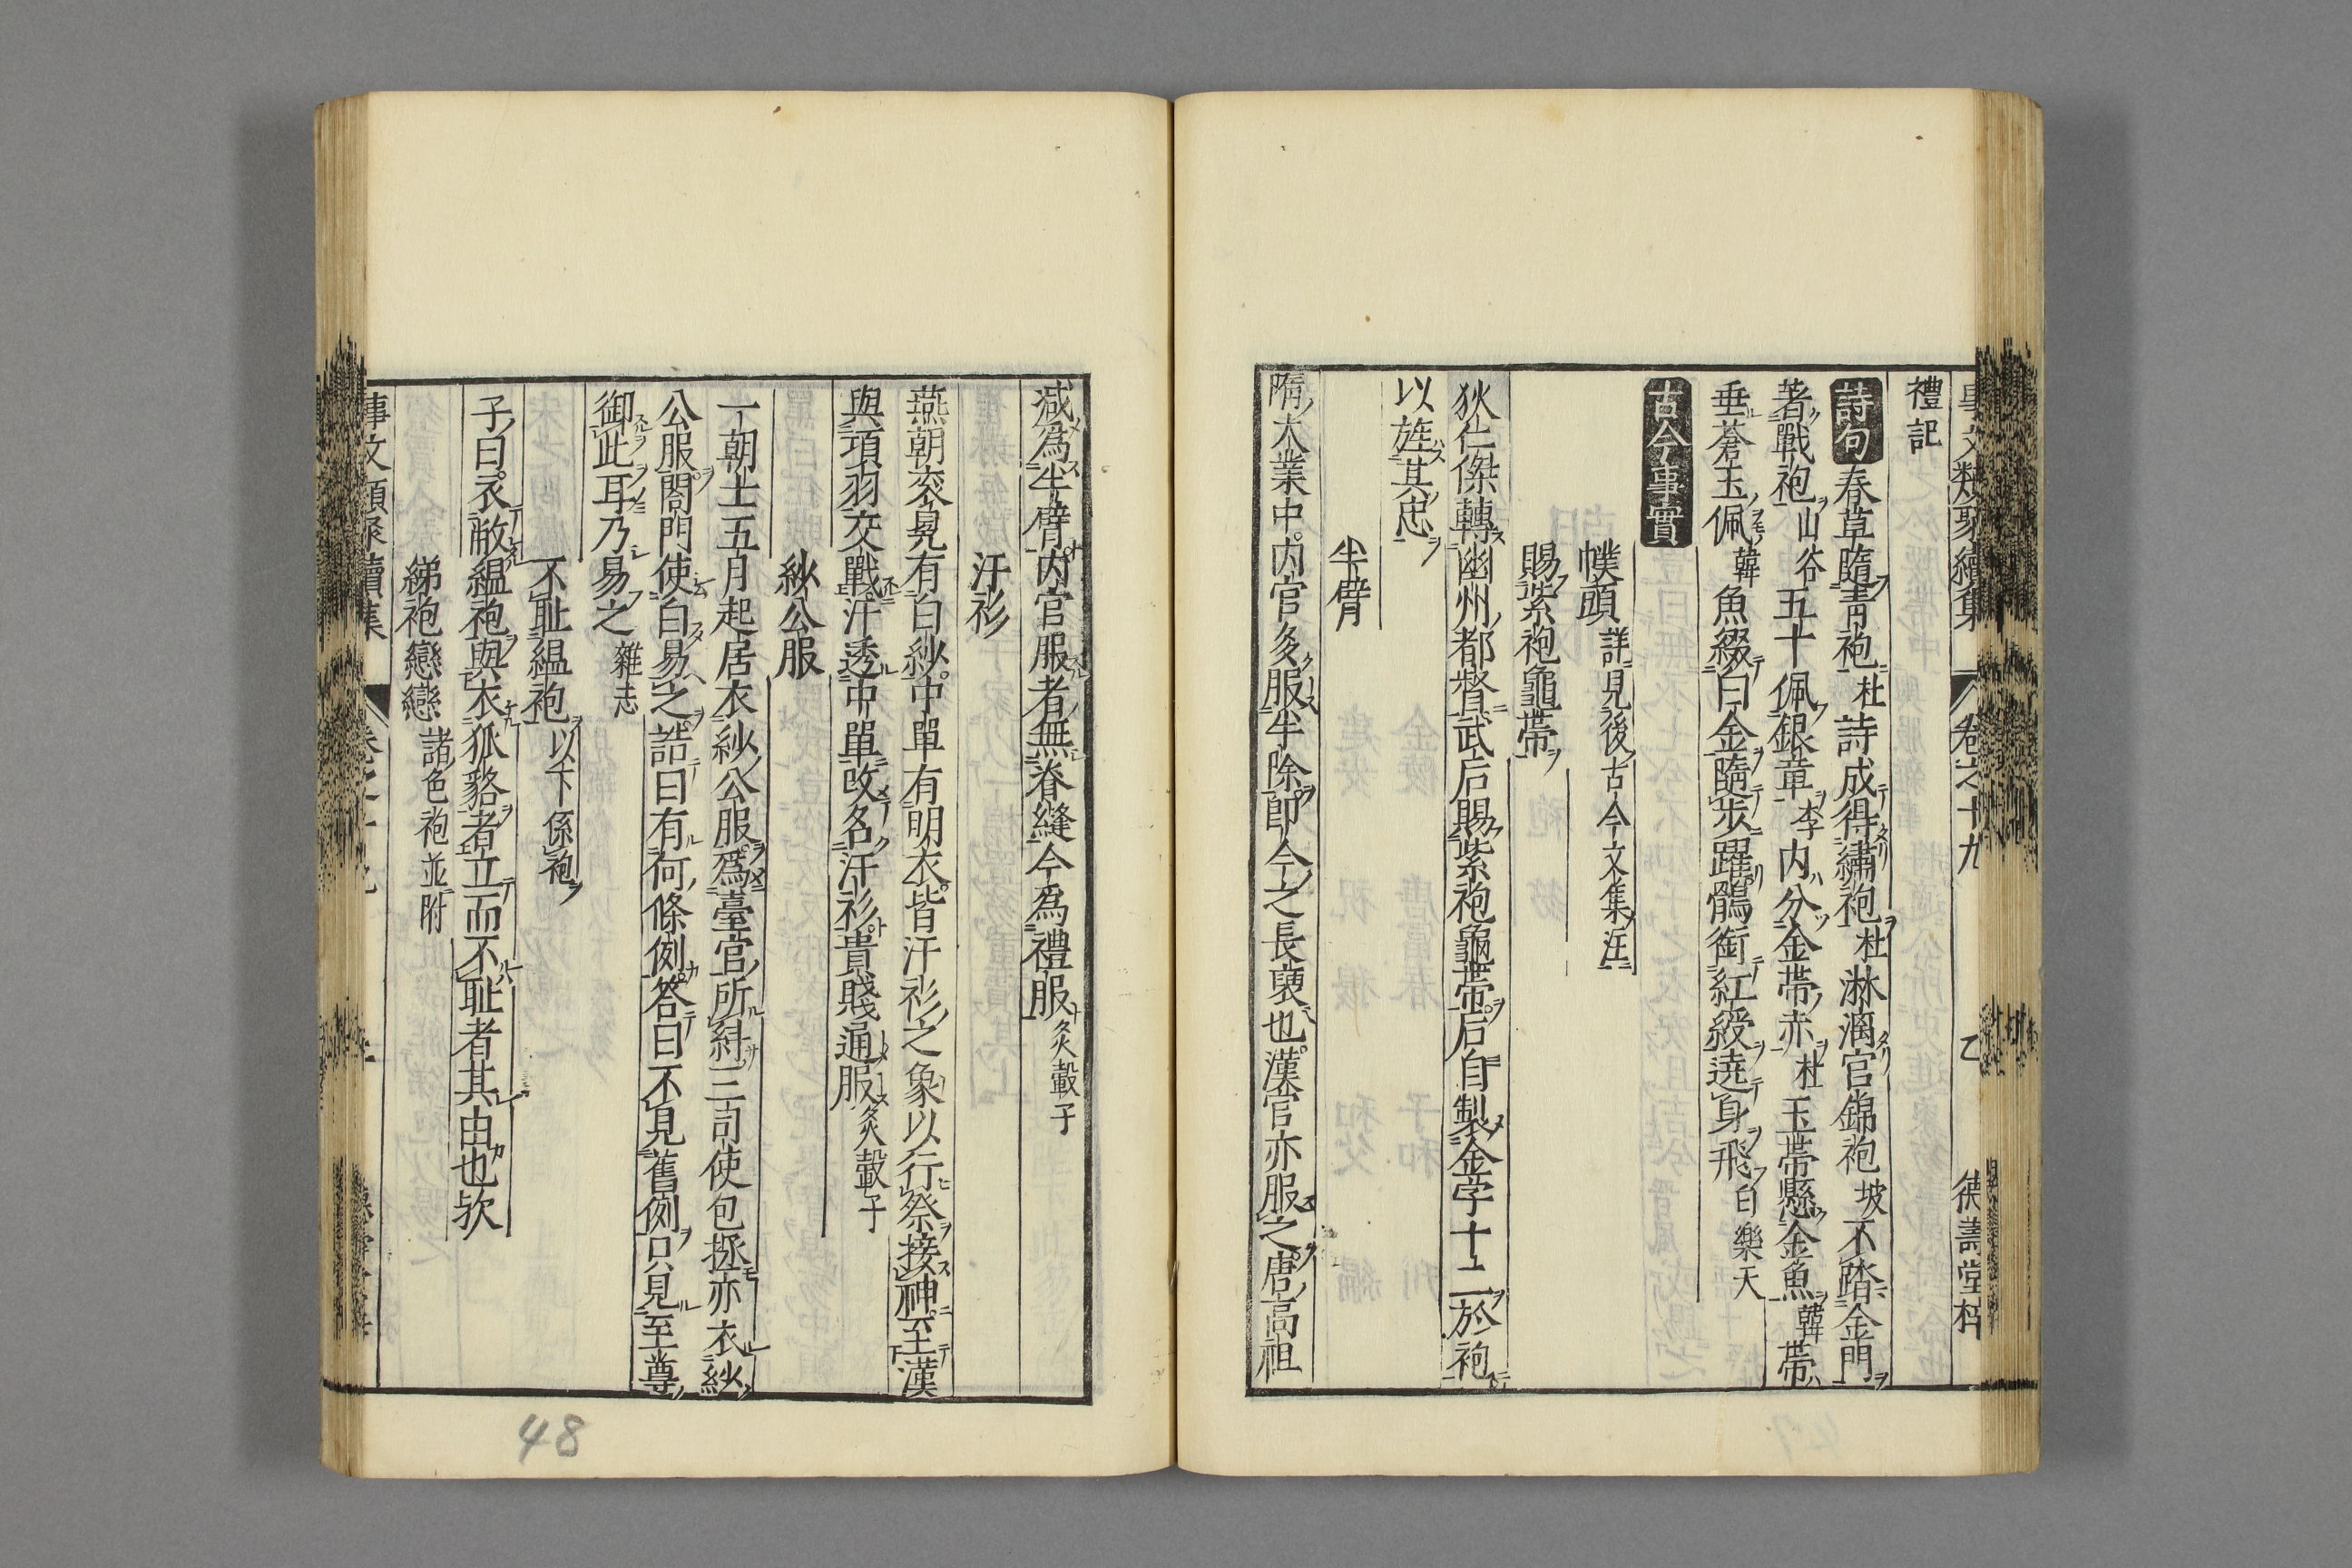 事文類聚續集 卷之十九 乙 德壽堂梓
禮記
詩句 春草隨青袍 杜 詩成得繡袍 杜 淋漓宮錦袍 坡 不踏金門
著戰袍 山谷 五十佩銀章 李 内分金帶赤 杜 玉帶懸金魚 韓 帶
垂蒼玉佩 韓 魚綴白金隨歩躍鶻銜紅綬遶身飛 白樂天
古今事實
幞頭 詳見後古今文集注
賜紫袍龜帶
狄仁傑轉幽州都督武后賜紫袍龜帶后自製金字十二於袍
以旌其忠
半臂
隋大業中内官多服半除即今之長褏也漢官亦服之唐高祖
減為半臂内官服者無脊縫今為禮服 炙轂子
汗衫
燕朝衮冕有白紗中單有明衣皆汗衫之象以行祭接神至漢
與項羽交戰汗透中單改名汗衫貴賤通服 炙轂子
紗公服
一朝士五月起居衣紗公服為臺官所糾三司使包拯亦衣紗
公服閤門使白易之詰曰有何條例答曰不見舊例只見至尊
御此耳乃易之 雜志
不耻縕袍 以下係袍
子曰衣敝縕袍與衣狐貉者立而不耻者其由也歟
綈袍戀戀 諸色袍並附
事文類聚續集
48